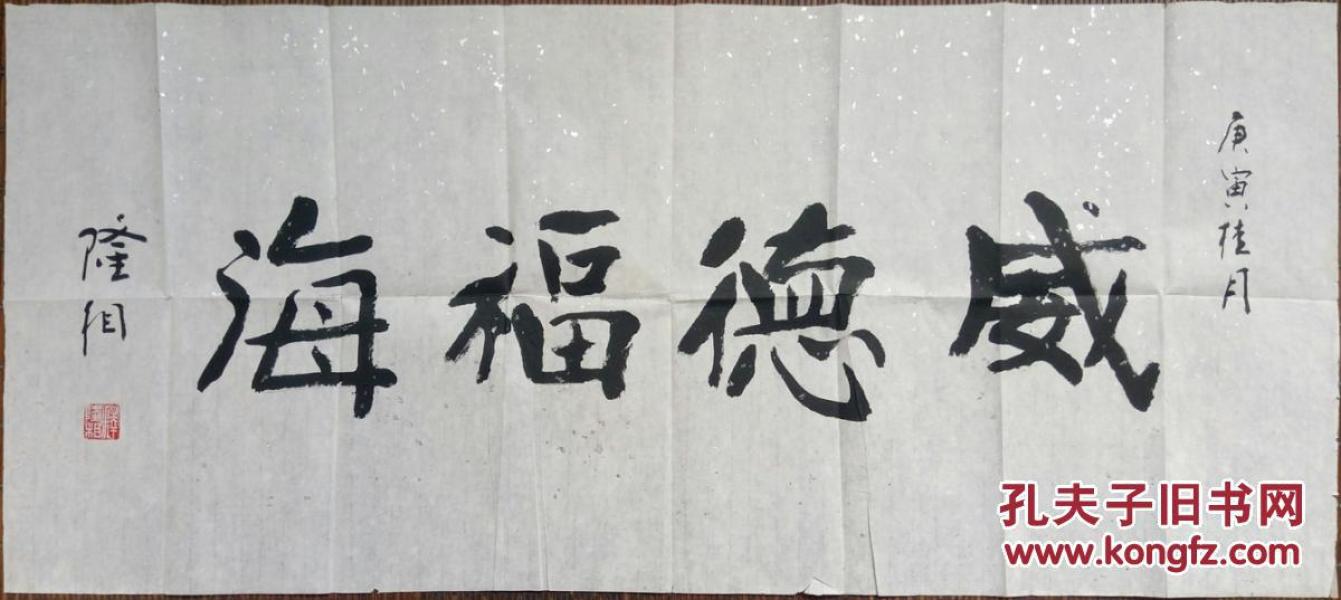 庚寅桂月
威德福海
隆相
孔夫子旧书网
www.kongfz.com